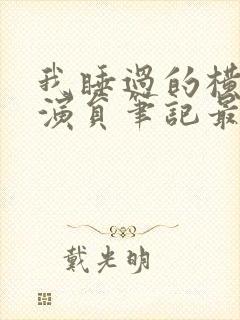 我睡過的橫
演員筆記最
戴光明